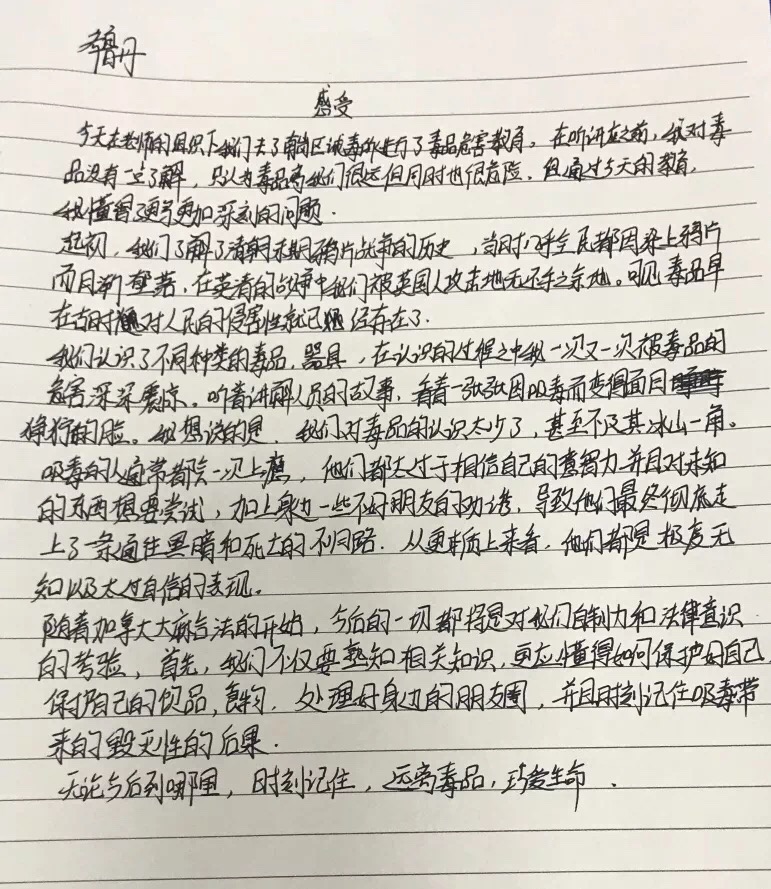 丹
感受
今天在老师的组织下我们去了南岗区戒毒所进行了毒品危害教育。在听讲座之前,我对毒
品没有一点了解,只认为毒品离我们很远但同时也很危险。但通过今天的教育,
我懂得了更加深刻的问题.
起初,我们了解了清朝末期鸦片战争的历史,当时几乎全民都因染上鸦片
而日渐堕落,在英清的战争中我们被英国人攻击地无还手之余地。可见毒品早
在古时对人民的侵害性就已经存在了.
我们认识了不同种类的毒品,器具,在认识的过程之中我一次又一次被毒品的
危害深深震惊。听着讲解人员的故事,看着一张张因吸毒而变得面目
狰狞的脸。我想说的是,我们对毒品的认识太少了,甚至不及其冰山一角。
吸毒的人通常都院一次上瘾,他们都太过于相信自己的意智力并且对未知
的东西想要尝试,加上身边一些不好朋友的劝诱,导致他们最终彻底走
上了一条通往黑暗和死亡的不归路.从更本质上来看,他们都是极度无
知以及太过自信的表现。
随着加拿大大麻合法的开始,今后的一切都将是对我们自制力和法律意识
的考验,首先,我们不仅要熟知相关知识,更应懂得如何保护好自己,
保护自己的饮品,食物.处理好身边的朋友圈,并且时刻记住吸毒带
来的毁灭性的后果.
无论今后到哪里,时刻记住,远离毒品,珍爱生命.